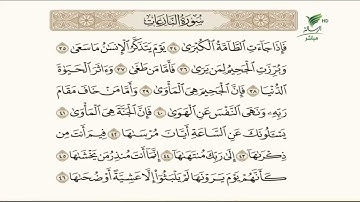 سُورَةُ النَّازِعَاتِ
فَإِذَا جَآءَتِ ٱلطَّآمَّةُ ٱلْكُبْرَىٰ ٣٤ يَوْمَ يَتَذَكَّرُ ٱلْإِنسَٰنُ مَا سَعَىٰ ٣٥
وَبُرِّزَتِ ٱلْجَحِيمُ لِمَن يَرَىٰ ٣٦ فَأَمَّا مَن طَغَىٰ ٣٧ وَءَاثَرَ ٱلْحَيَوٰةَ
ٱلدُّنْيَا ٣٨ فَإِنَّ ٱلْجَحِيمَ هِىَ ٱلْمَأْوَىٰ ٣٩ وَأَمَّا مَنْ خَافَ مَقَامَ
رَبِّهِۦ وَنَهَى ٱلنَّفْسَ عَنِ ٱلْهَوَىٰ ٤٠ فَإِنَّ ٱلْجَنَّةَ هِىَ ٱلْمَأْوَىٰ ٤١
يَسْـَٔلُونَكَ عَنِ ٱلسَّاعَةِ أَيَّانَ مُرْسَىٰهَا ٤٢ فِيمَ أَنتَ مِن
ذِكْرَىٰهَآ ٤٣ إِلَىٰ رَبِّكَ مُنتَهَىٰهَآ ٤٤ إِنَّمَآ أَنتَ مُنذِرُ مَن يَخْشَىٰهَا ٤٥
كَأَنَّهُمْ يَوْمَ يَرَوْنَهَا لَمْ يَلْبَثُوٓا۟ إِلَّا عَشِيَّةً أَوْ ضُحَىٰهَا ٤٦
HD
مباشر